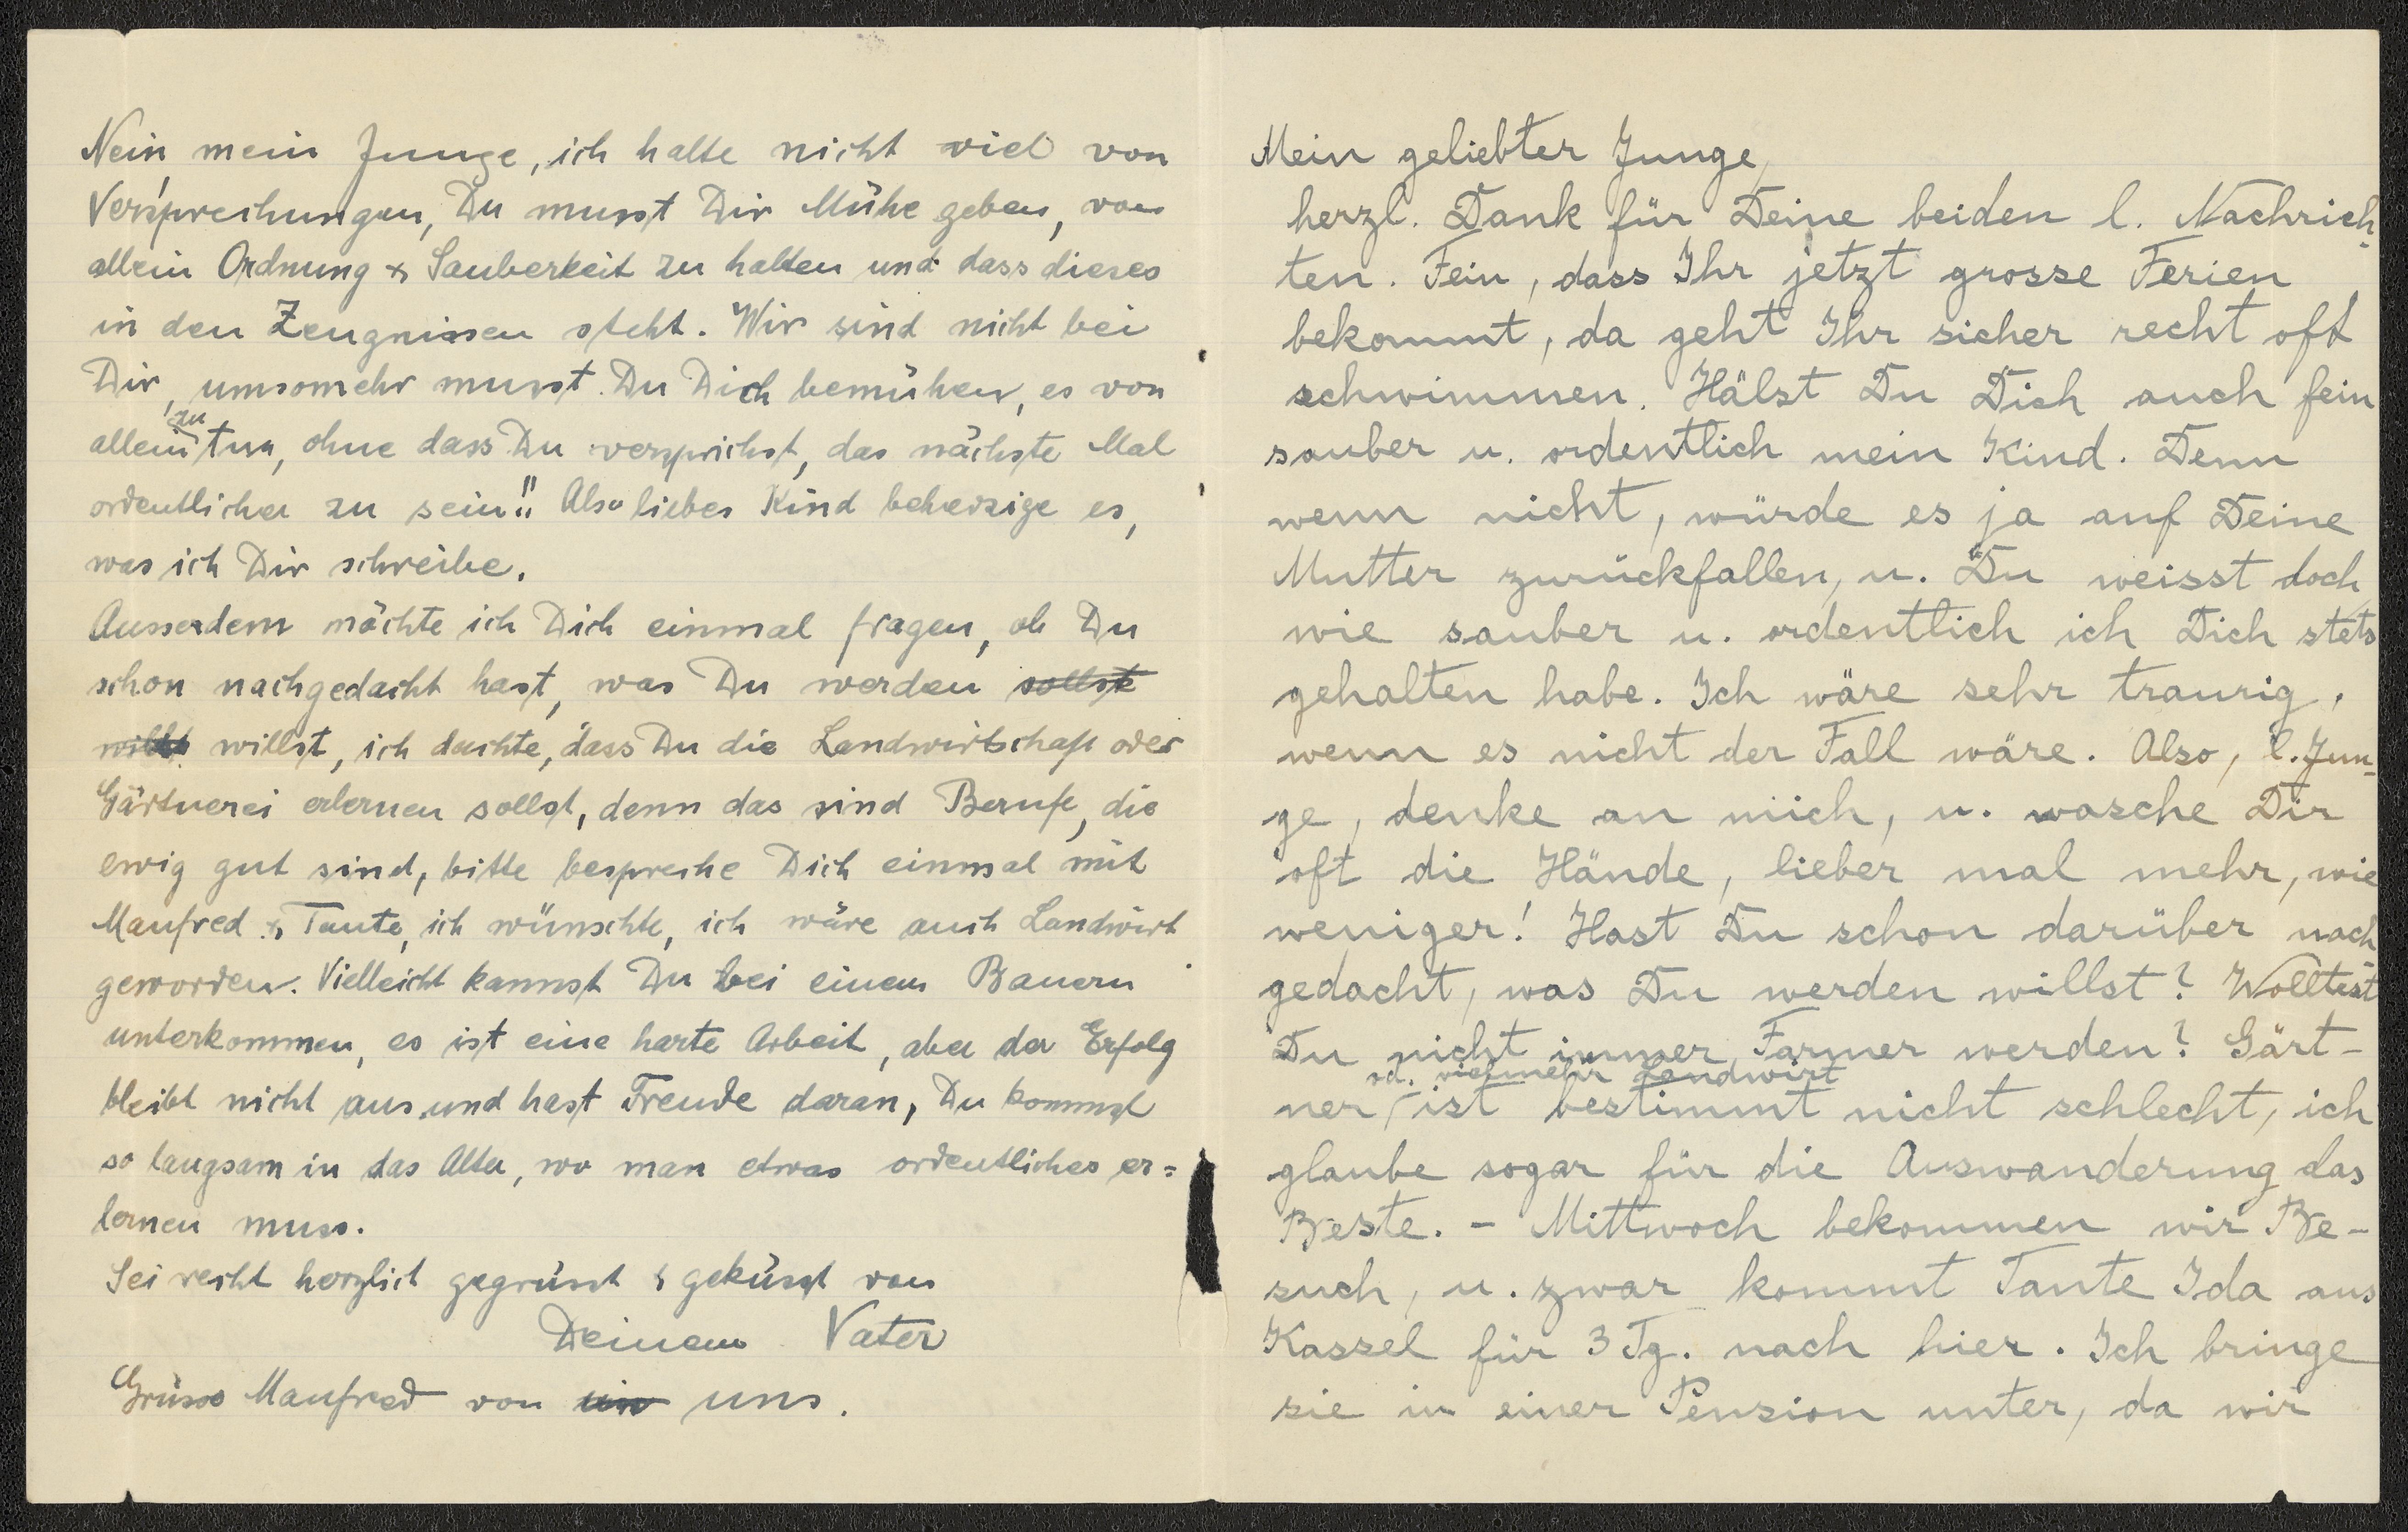 Nein, mein Junge, ich halte nicht viel von
Versprechungen, Du musst Dir Mühe geben, von
allein Ordnung & Sauberkeit zu halten und dass dieses
in den Zeugnissen steht. Wir sind nicht bei
Dir, umsomehr musst Du Dich bemühen, es von
zu
allein tun, ohne dass Du versprichst, das nächste Mal
ordentlicher zu sein!! Also liebes Kind beherzige es,
was ich Dir schreibe.
Ausserdem möchte ich Dich einmal fragen, ob Du
schon nachgedacht hast, was Du werden sollste
willst, ich dachte, dass Du die Landwirtschaft oder
Gärtnerei erlernen sollst, denn das sind Berufe, die
ewig gut sind, bitte bespreche Dich einmal mit
Manfred & Tante, ich wünschte, ich wäre auch Landwirt
geworden. Vielleicht kannst Du bei einem Bauern
unterkommen, es ist eine harte Arbeit, aber der Erfolg
bleibt nicht aus und hast Freude daran, Du kommst
so langsam in das Alter, wo man etwas ordentliches er=
lernen muss.
Sei recht herzlich gegrüsst & geküsst von
Deinem Vater
Grüsse Manfred von uns.
Mein geliebter Junge,
herzl. Dank für Deine beiden l. Nachrich-
ten. Fein, dass Ihr jetzt grosse Ferien
bekommt, da geht Ihr sicher recht oft
schwimmen. Hälst Du Dich auch fein
sauber u. ordentlich mein Kind. Denn
wenn nicht, würde es ja auf Deine
Mutter zurückfallen, u. Du weisst doch
wie sauber u. ordentlich ich Dich stets
gehalten habe. Ich wäre sehr traurig,
wenn es nicht der Fall wäre. Also, l. Jun-
ge, denke an mich, u. wasche Dir
oft die Hände, lieber mal mehr, wie
weniger! Hast Du schon darüber nach
gedacht, was Du werden willst? Wolltest
Du nicht immer Farmer werden? Gärt-
od. vielmehr Landwirt
ner, ist bestimmt nicht schlecht, ich
glaube sogar für die Auswanderung das
Beste. - Mittwoch bekommen wir Be-
such, u. zwar kommt Tante Ida aus
Kassel für 3 Tg. nach hier. Ich bringe
sie in einer Pension unter, da wir